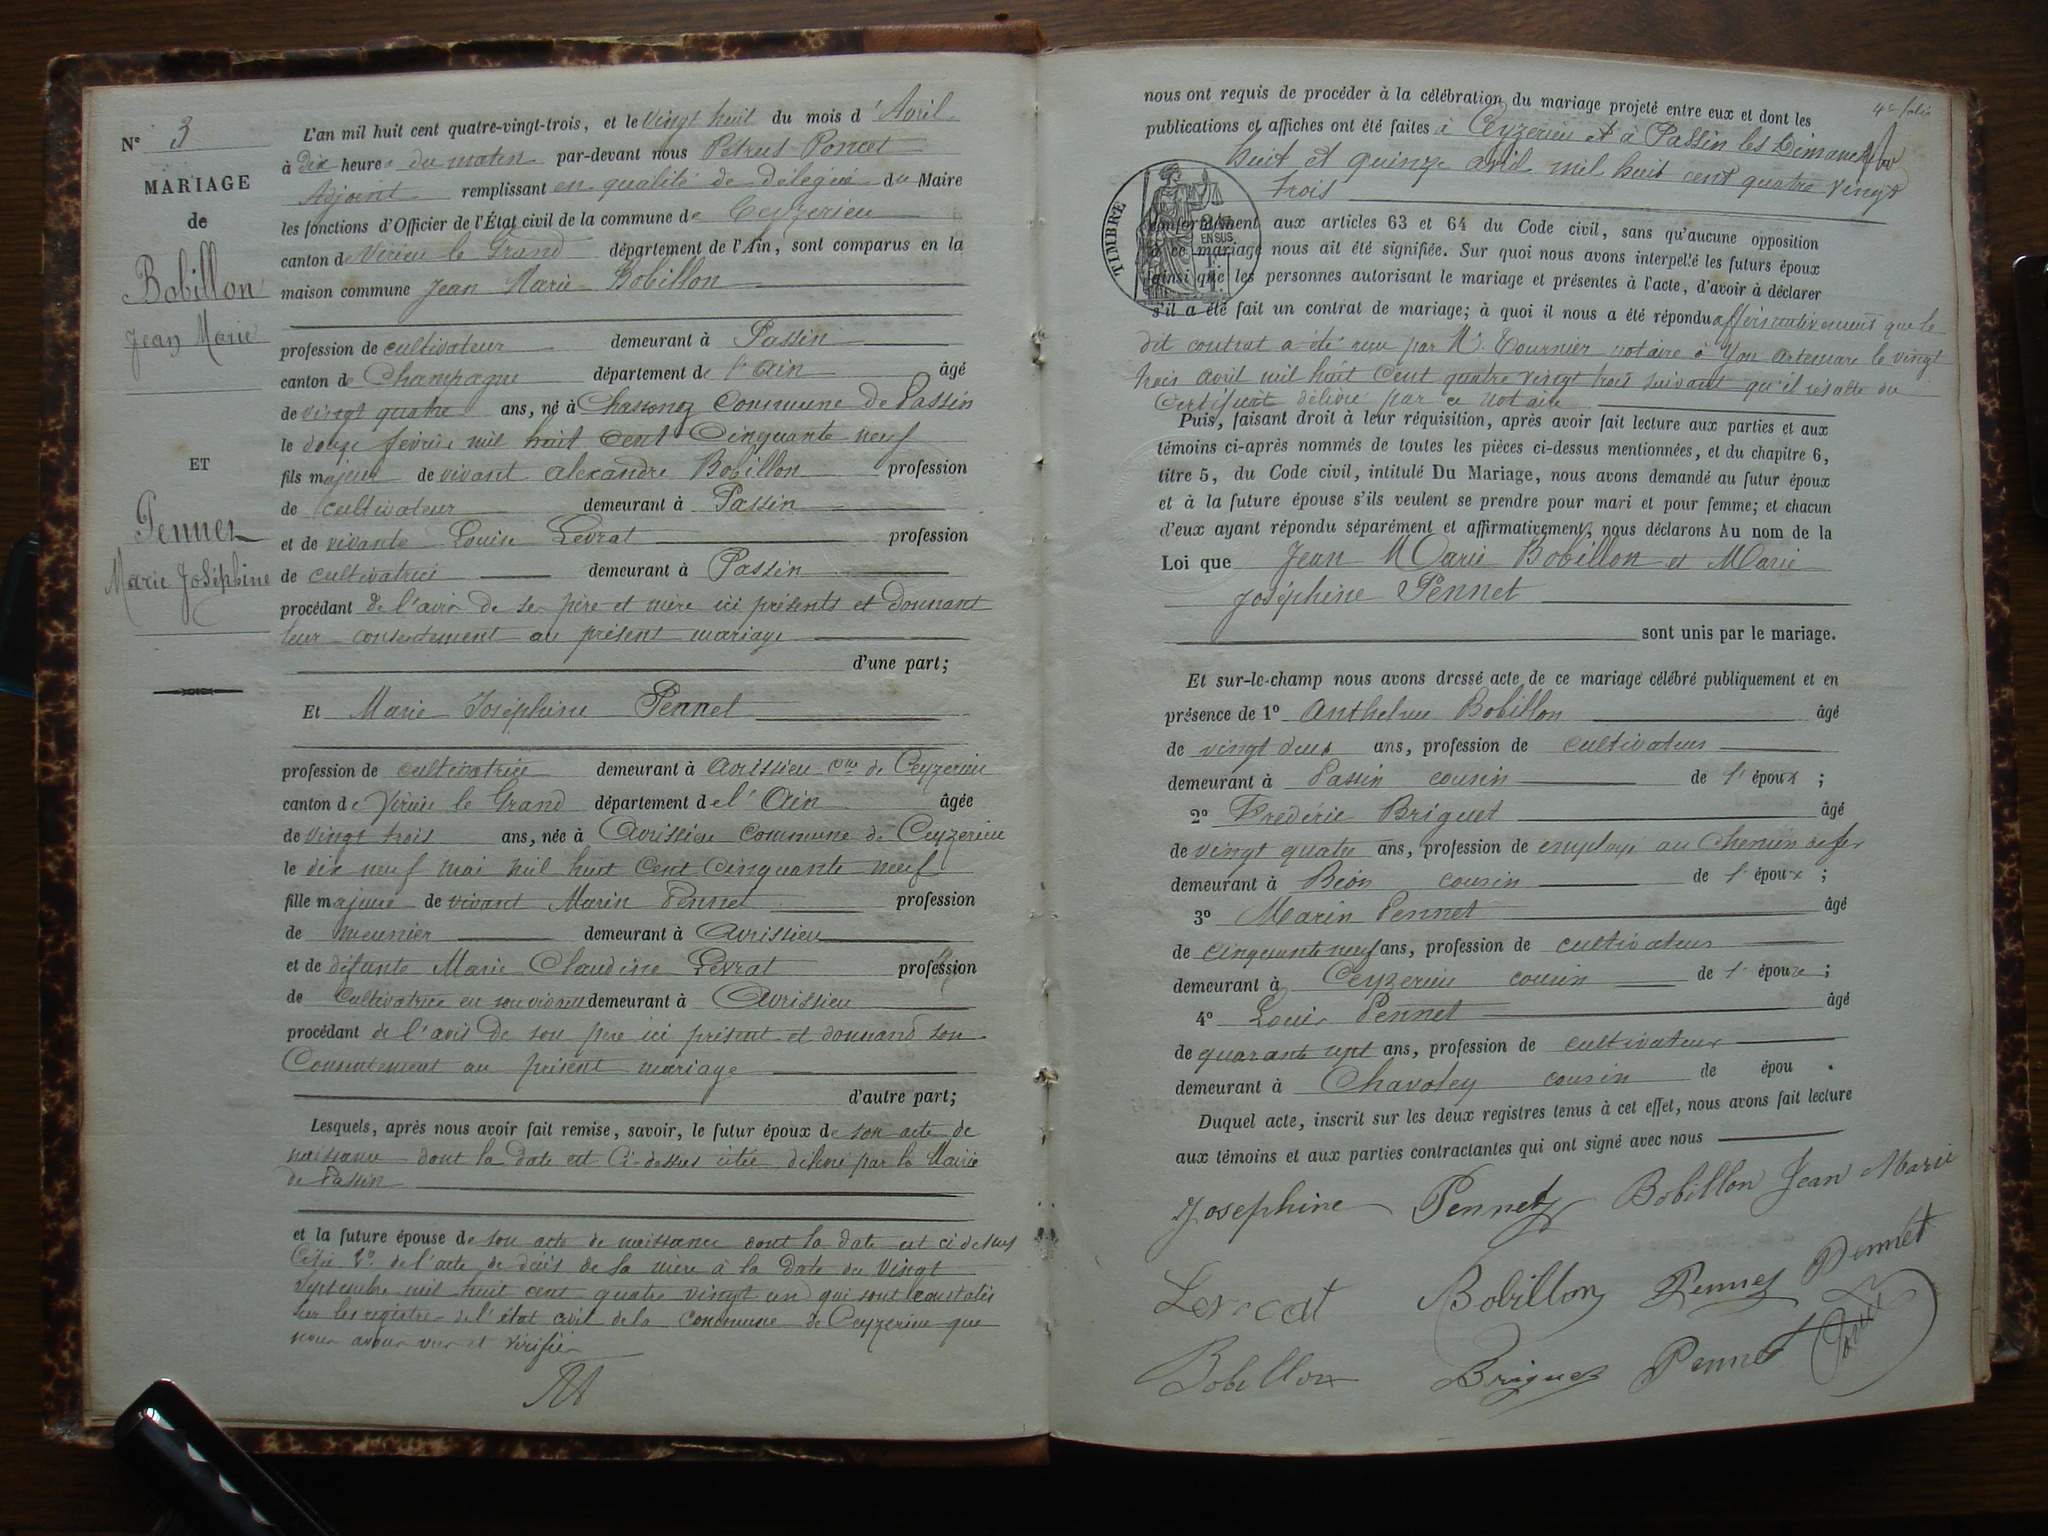 N° 3
MARIAGE
de
Bobillon
Jean Marie
ET
Pennet
Marie Joséphine
L'an mil huit cent quatre-vingt-trois, et le vingt huit du mois d'Avril
à dix heures du matin par-devant nous Petrus Poncet
Adjoint remplissant en qualité de délégué du Maire
les fonctions d'Officier de l'État civil de la commune de Ceyzerieu
canton de Virieu le Grand département de l'Ain, sont comparus en la
maison commune Jean Marie Bobillon
profession de cultivateur demeurant à Passin
canton de Champagne département de l'Ain âgé
de vingt quatre ans, né à Chassonoz Commune de Passin
le douze février mil huit cent cinquante neuf
fils majeur de vivant Alexandre Bobillon profession
de cultivateur demeurant à Passin
et de vivante Louise Levrat profession
de cultivatrice demeurant à Passin
procédant de l'avis de ses père et mère ici présents et donnant
leur consentement au présent mariage
d'une part;
Et Marie Joséphine Pennet
profession de cultivatrice demeurant à Avrissieu cne de Ceyzerieu
canton de Virieu le Grand département de l'Ain âgée
de vingt trois ans, née à Avrissieu commune de Ceyzerieu
le dix neuf mai mil huit cent cinquante neuf
fille majeure de vivant Marin Pennet profession
de meunier demeurant à Avrissieu
et de défunte Marie Claudine Levrat profession
de Cultivatrice en son vivant demeurant à Avrissieu
procédant de l'avis de son père ici présent et donnand son
Consentement au présent mariage
d'autre part;
Lesquels, après nous avoir fait remise, savoir, le futur époux de son acte de
naissance dont la date est Ci-dessus citée délivré par la Mairie
de Passin
et la future épouse de son acte de naissance dont la date est ci dessus
Citée 2° de l'acte de décès de sa mère à la date du vingt
septembre mil huit cent quatre vingt un qui sont constatés
sur les registres de l'état civil de la commune de Ceyzerieu que
nous avons vus et vérifiés
4e folio
nous ont requis de procéder à la célébration du mariage projeté entre eux et dont les
publications et affiches ont été faites à Ceyzerieu et à Passin les Dimanches
huit et quinze avril mil huit cent quatre vingt
trois
TIMBRE
2/10
EN SUS
conformément aux articles 63 et 64 du Code civil, sans qu'aucune opposition
à ce mariage nous ait été signifiée. Sur quoi nous avons interpellé les futurs époux
ainsi que les personnes autorisant le mariage et présentes à l'acte, d'avoir à déclarer
s'il a été fait un contrat de mariage; à quoi il nous a été répondu affirmativement que le
dit contrat a été reçu par Me Tournier notaire à Yon Artemare le vingt
trois avril mil huit Cent quatre vingt trois suivant qu'il résulte du
Certificat délivré par ce Notaire
Puis, faisant droit à leur réquisition, après avoir fait lecture aux parties et aux
témoins ci-après nommés de toutes les pièces ci-dessus mentionnées, et du chapitre 6,
titre 5, du Code civil, intitulé Du Mariage, nous avons demandé au futur époux
et à la future épouse s'ils veulent se prendre pour mari et pour femme; et chacun
d'eux ayant répondu séparément et affirmativement, nous déclarons Au nom de la
Loi que Jean Marie Bobillon et Marie
Joséphine Pennet
sont unis par le mariage.
Et sur-le-champ nous avons dressé acte de ce mariage célébré publiquement et en
présence de 1° Anthelme Bobillon âgé
de vingt deux ans, profession de cultivateur
demeurant à Passin cousin de l'époux;
2° Frédéric Briguet âgé
de vingt quatre ans, profession de employé au Chemin de fer
demeurant à Béon cousin de l'époux;
3° Marin Pennet âgé
de cinquante neuf ans, profession de cultivateur
demeurant à Ceyzerieu cousin de l'épouze;
4° Louis Pennet âgé
de quarante sept ans, profession de cultivateur
demeurant à Chavoley cousin de épou .
Duquel acte, inscrit sur les deux registres tenus à cet effet, nous avons fait lecture
aux témoins et aux parties contractantes qui ont signé avec nous
Josephine Pennet Bobillon Jean Marie
Levrat Bobillon Pennet Pennet
Bobillon Briguet Pennet